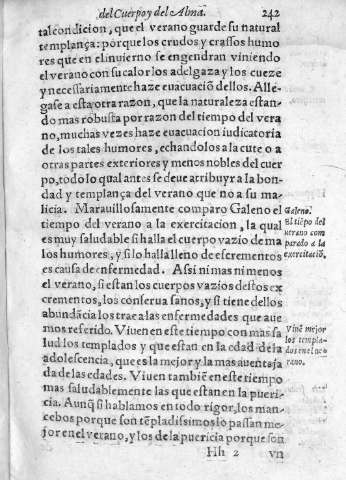 del Cuerpo y del Alma. 242
tal condicion, que el verano guarde su natural
templança: porque los crudos y crassos humo
res que en el inuierno se engendran viniendo
el verano con su calor los adelgaza y los cueze
y necessariamente haze euacuaciõ dellos. Alle-
gase a esta otra razon, que la naturaleza estan-
do mas robusta por razon del tiempo del vera
no, muchas vezes haze euacuacion iudicatoria
de los tales humores, echandolos a la cute o a
otras partes exteriores y menos nobles del cuer
po, todo lo qual antes se deue atribuyr a la bon-
dad y templança del verano que no a su ma-
licia. Marauillosamente comparo Galeno el
tiempo del verano a la exercitacion, la qual
es muy saludable si halla el cuerpo vazio de ma
los humores, y si lo halla lleno de escrementos
es causa de enfermedad. Assi ni mas ni menos
el verano, si estan los cuerpos vazios destos ex
crementos, los conserua sanos, y si tiene dellos
abundãcia los trae a las enfermedades que aue
mos referido. Viuen en este tiempo con mas sa
lud los templados y que estan en la edad de la
adolescencia, que es la mejor y la mas auentaja
da de las edades. Viuen tambiẽ en este tiempo
mas saludablemente las que estan en la pueri-
cia. Aunq̃ si hablamos en todo rigor, los man-
cebos porque son tẽpladissimos lo passan me-
jor en el verano, y los de la puericia porque son
Hh 2 vn
Galeno.
El tiẽpo del
verano com
parado a la
exercitaciõ.
Viuẽ mejor
los templa-
dos en el ve
rano.